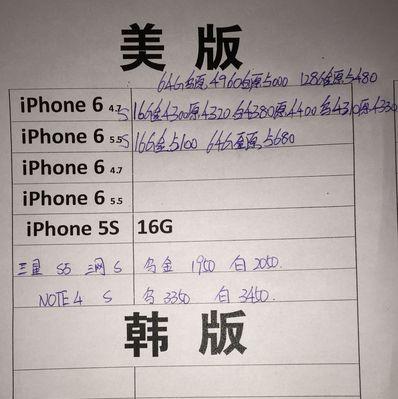 美版
64G金原4960白原5000 128G金原5480
iPhone 6 4.7 S 16G金4300原4320白4380原4400黑4310原4330
iPhone 6 5.5 S 16G金5100 64G金原5680
iPhone 6 4.7
iPhone 6 5.5
iPhone 5S 16G
三星 S5 三网 S 乌金 1950 白 2050.
NOTE 4 S 乌 3350 白 3450.
韩版